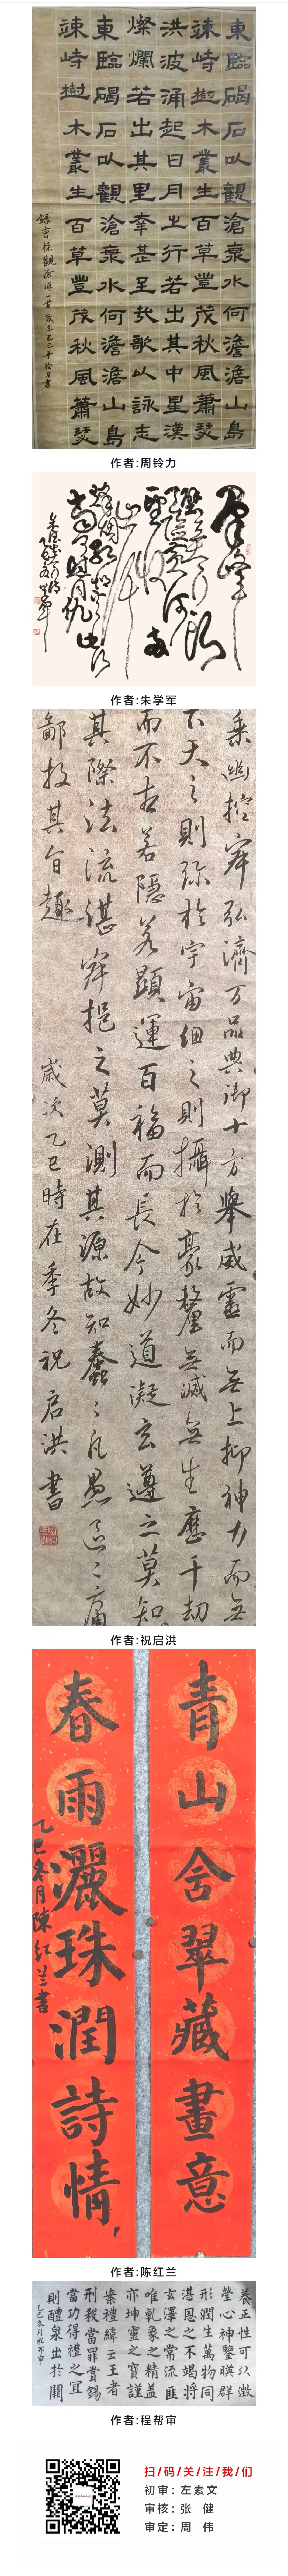 東臨碣石以觀滄衆水何澹澹山島
竦峙樹木叢生百草豐茂秋風蕭瑟
洪波涌起日月之行若出其中星漢
燦爛若出其里幸甚至哉歌以詠志
東臨碣石以觀滄衆水何澹澹山島
竦峙樹木叢生百草豐茂秋風蕭瑟
録曹操觀滄海一首歲在乙巳年铃力書
作者:周铃力
作者:朱学军
乘幽控寂弘濟万品典御十方舉威靈而無上抑神力而無
下大之則弥於宇宙細之則攝於豪釐無滅無生歷千劫
而不古若隱若顯運百福而長今妙道凝玄遵之莫知
其際法流湛寂挹之莫測其源故知蠢〻凡愚區〻庸
鄙投其旨趣 歲次乙巳時在季冬祝启洪書
作者:祝启洪
青山含翠藏畫意
春雨灑珠潤詩情
乙巳冬月陳红兰書
作者:陈红兰
養正性可以澂
瑩心神鑒暎群
形潤生萬物同
湛恩之不竭將
玄澤之常流匪
唯乾象之精蓋
亦坤靈之寶謹
案禮緯云王者
刑殺當罪賞錫
當功得禮之宜
則醴泉出於闕
乙巳冬月程帮审
作者:程帮审
扫/码/关/注/我/们
初审: 左素文
审核: 张 健
审定: 周 伟